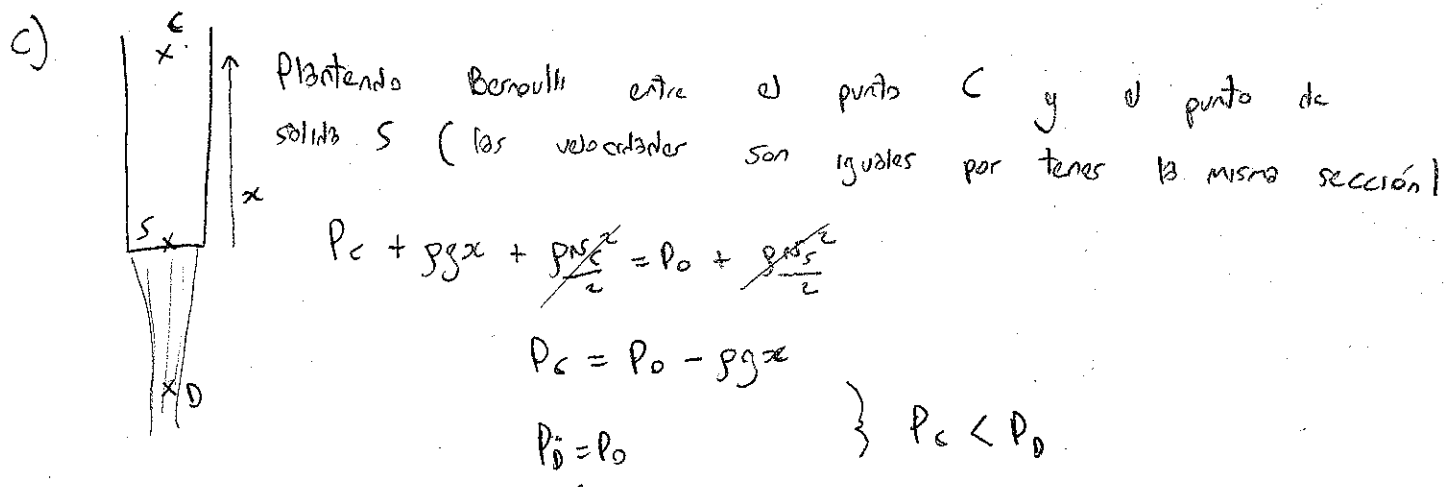 c)
C
Plantendo Bernoulli entre el punto C y el punto de
salida S (las velocidades son iguales por tener la misma sección)
x
S
P_c + ρgx + ρv_c²/2 = P_0 + ρv_s²/2
P_c = P_0 - ρgx
D
P_D = P_0 } P_c < P_D